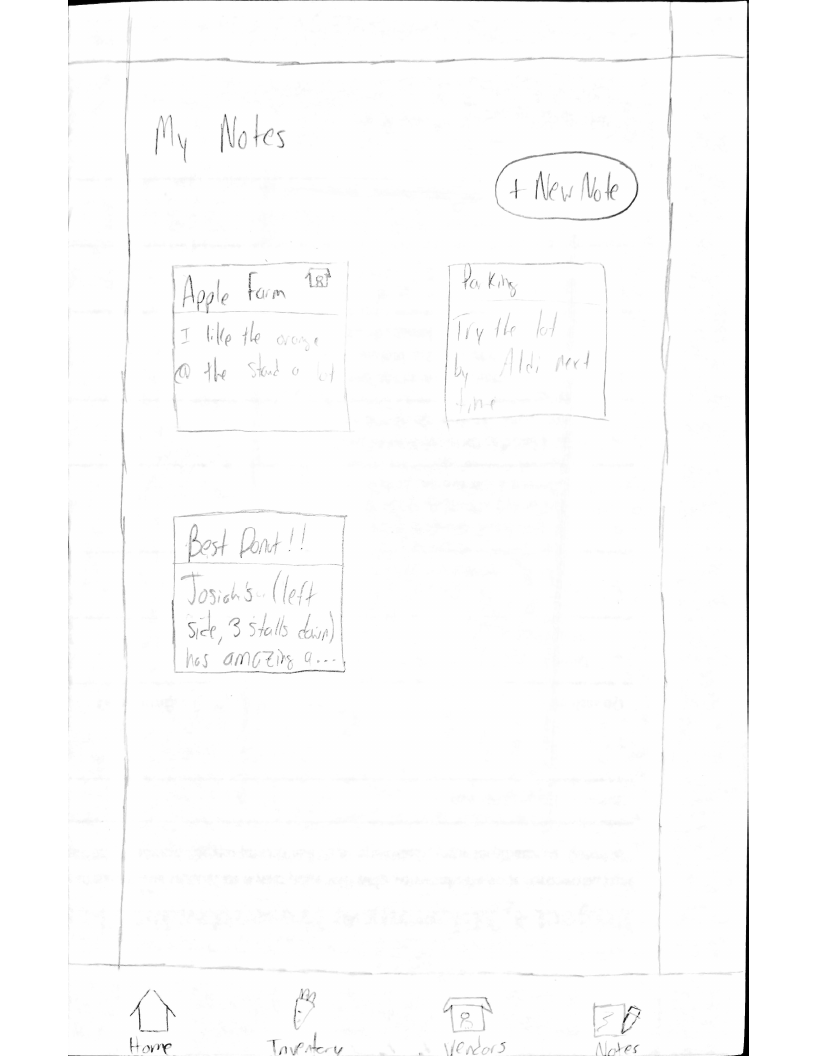 My Notes
+ New Note
Apple Farm
I like the orange
@ the stand a lot
Parking
Try the lot
by Aldi next
time
Best Donut!!
Josiah's (left
side, 3 stalls down)
has amazing a...
Home
Inventory
Vendors
Notes